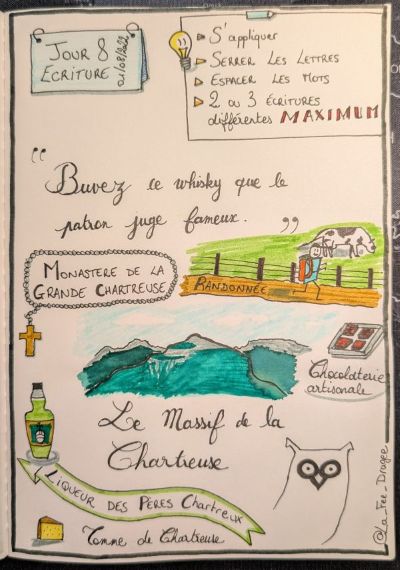 JOUR 8
ECRITURE
01/08/2022
S'appliquer
SERRER LES LETTRES
ESPACER LES MOTS
2 OU 3 ÉCRITURES
différentes MAXIMUM
“
Buvez ce whisky que le
patron juge fameux.
”
MONASTERE DE LA
GRANDE CHARTREUSE
RANDONNÉE
Chocolaterie
artisanale
Le Massif de la
Chartreuse
LIQUEUR DES PÈRES CHARTREUX
Tomme de Chartreuse
@La_Fee_Dragee